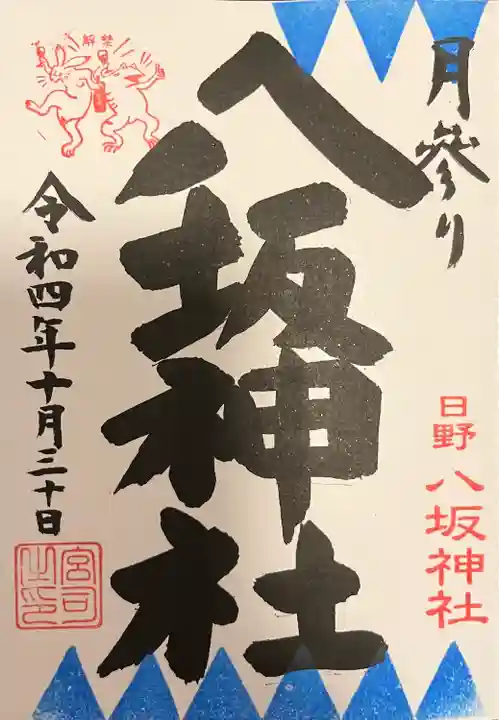 月参り
八坂神社
日野 八坂神社
解禁
令和四年十月三十日
宮司之印